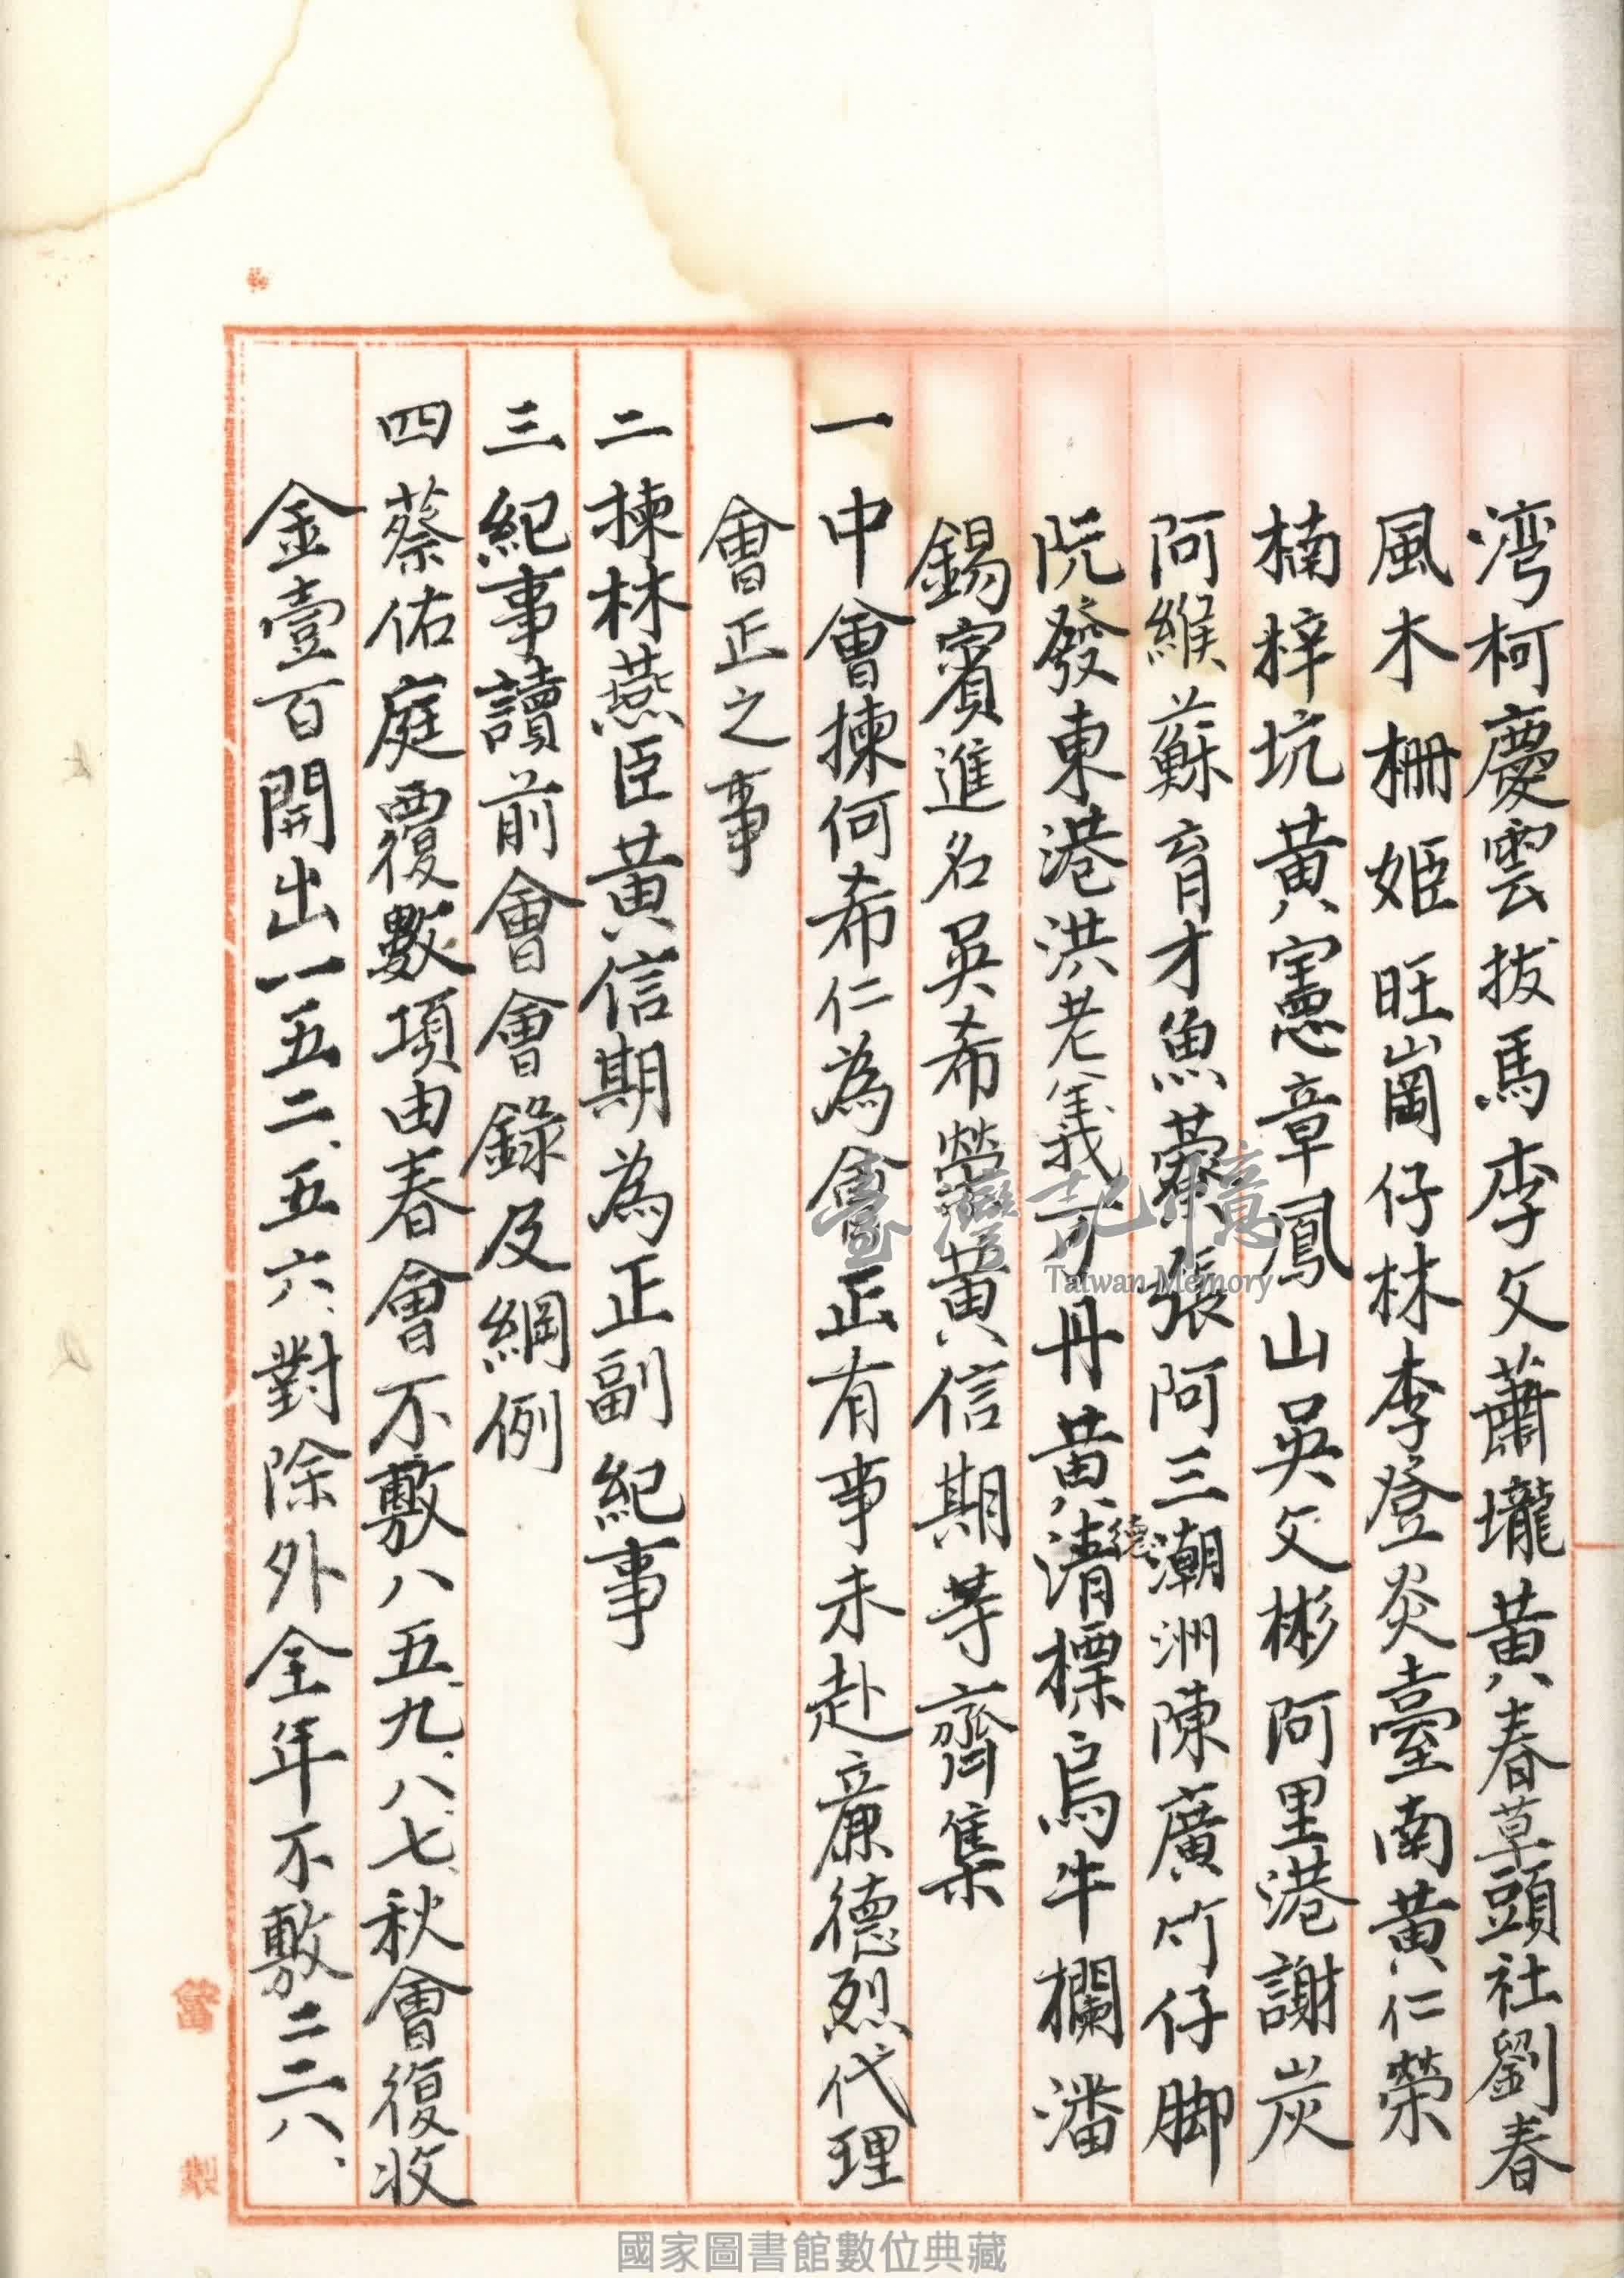 湾柯慶雲拔馬李文蕭壠黃春草頭社劉春
風木柵姫旺崗仔林李登炎臺南黃仁榮
楠梓坑黃憲章鳳山吳文彬阿里港謝炭
阿緱蘇育才魚藔張阿三潮洲陳廣竹仔脚
阮發東港洪老義可丹黃清標烏牛欄潘
德
錫賓進名吳希榮黃信期等齊集
一中會揀何希仁為會正有事未赴亷德烈代理
會正之事
二揀林燕臣黃信期為正副紀事
三紀事讀前會會錄及綱例
四蔡佑庭覆數項由春會不敷八五九、八七、秋會復收
金壹百開出一五二、五六、對除外全年不敷二二八、
臺灣記憶
Taiwan Memory
國家圖書館數位典藏